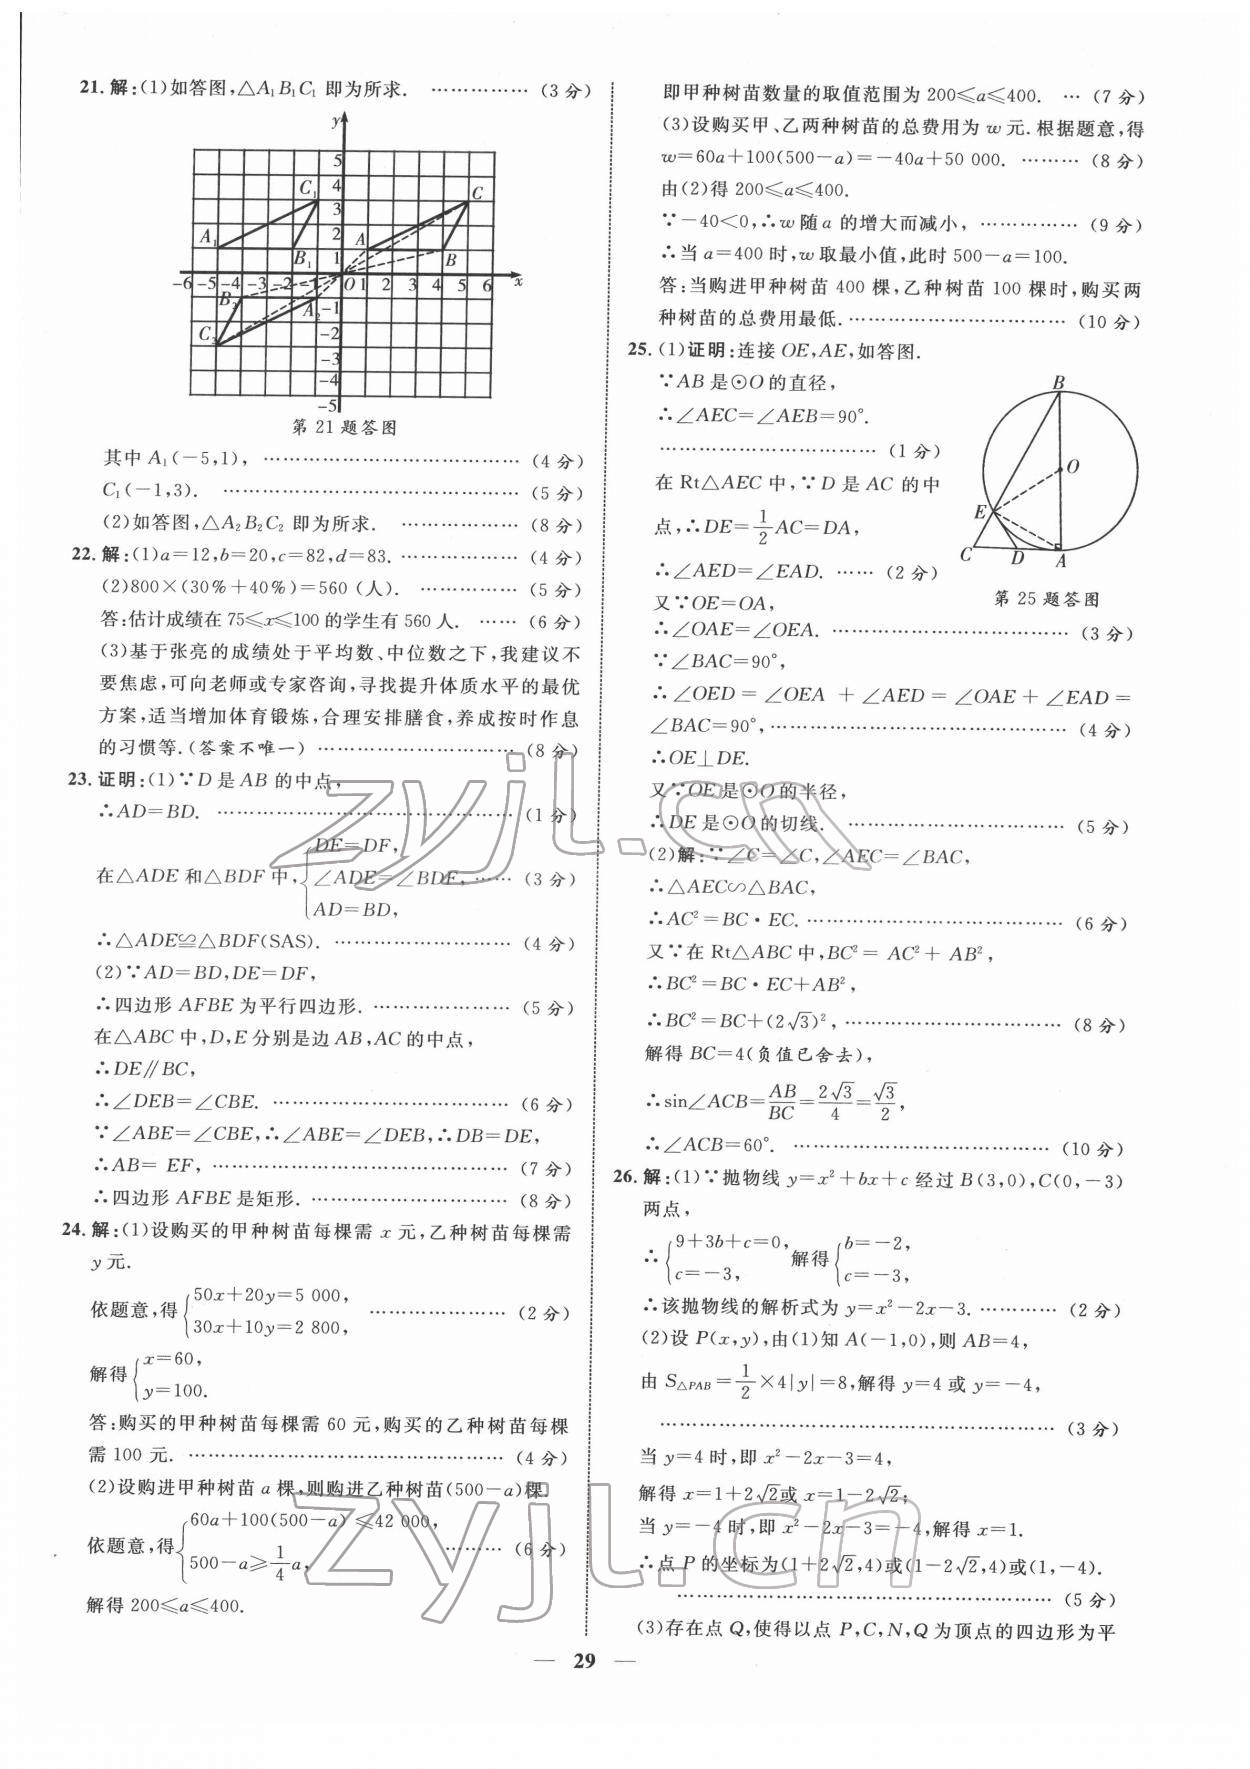 21.解:(1)如答图,△A₁B₁C₁ 即为所求. ……………(3分)
y
5
C₁ 4 C
3
A₁ 2 A
B₁ 1 B
-6 -5 -4 -3 -2 O 1 2 3 4 5 6 x
B₂ A₂ -1
C₂ -2
-3
-4
-5
第21题答图
其中 A₁(-5,1), ………………………………(4分)
C₁(-1,3). ………………………………………(5分)
(2)如答图,△A₂B₂C₂ 即为所求. ………………(8分)
22.解:(1)a=12,b=20,c=82,d=83. ………………(4分)
(2)800×(30%+40%)=560(人). ……………(5分)
答:估计成绩在 75≤x≤100 的学生有 560 人. ……(6分)
(3)基于张亮的成绩处于平均数、中位数之下,我建议不
要焦虑,可向老师或专家咨询,寻找提升体质水平的最优
方案,适当增加体育锻炼,合理安排膳食,养成按时作息
的习惯等.(答案不唯一) …………………………(8分)
23.证明:(1)∵D 是 AB 的中点,
∴AD=BD. ………………………………………(1分)
在△ADE 和△BDF 中,{DE=DF, ∠ADE=∠BDF, AD=BD, ……(3分)
∴△ADE≌△BDF(SAS). ………………………(4分)
(2)∵AD=BD,DE=DF,
∴四边形 AFBE 为平行四边形. …………………(5分)
在△ABC 中,D,E 分别是边 AB,AC 的中点,
∴DE∥BC,
∴∠DEB=∠CBE. ………………………………(6分)
∵∠ABE=∠CBE,∴∠ABE=∠DEB,∴DB=DE,
∴AB= EF, ………………………………………(7分)
∴四边形 AFBE 是矩形. …………………………(8分)
24.解:(1)设购买的甲种树苗每棵需 x 元,乙种树苗每棵需
y 元.
依题意,得{50x+20y=5 000, 30x+10y=2 800, …………………(2分)
解得{x=60, y=100.
答:购买的甲种树苗每棵需 60 元,购买的乙种树苗每棵
需 100 元. …………………………………………(4分)
(2)设购进甲种树苗 a 棵,则购进乙种树苗(500-a)棵.
依题意,得{60a+100(500-a)≤42 000, 500-a≥1/4 a, ………(6分)
解得 200≤a≤400.
即甲种树苗数量的取值范围为 200≤a≤400. …(7分)
(3)设购买甲、乙两种树苗的总费用为 w 元.根据题意,得
w=60a+100(500-a)=-40a+50 000. ………(8分)
由(2)得 200≤a≤400.
∵-40<0,∴w 随 a 的增大而减小, ……………(9分)
∴当 a=400 时,w 取最小值,此时 500-a=100.
答:当购进甲种树苗 400 棵,乙种树苗 100 棵时,购买两
种树苗的总费用最低. ……………………………(10分)
25.(1)证明:连接 OE,AE,如答图.
∵AB 是⊙O 的直径,
∴∠AEC=∠AEB=90°.
……………………………(1分)
在 Rt△AEC 中,∵D 是 AC 的中
点,∴DE=1/2 AC=DA,
∴∠AED=∠EAD. ……(2分)
B
O
E
C D A
第25题答图
又∵OE=OA,
∴∠OAE=∠OEA. ………………………………(3分)
∵∠BAC=90°,
∴∠OED=∠OEA+∠AED=∠OAE+∠EAD=
∠BAC=90°, ………………………………………(4分)
∴OE⊥DE.
又∵OE 是⊙O 的半径,
∴DE 是⊙O 的切线. ……………………………(5分)
(2)解:∵∠C=∠C,∠AEC=∠BAC,
∴△AEC∽△BAC,
∴AC²=BC·EC. …………………………………(6分)
又∵在 Rt△ABC 中,BC²= AC²+ AB²,
∴BC²=BC·EC+AB²,
∴BC²=BC+(2√3)², ……………………………(8分)
解得 BC=4(负值已舍去),
∴sin∠ACB=AB/BC=2√3/4=√3/2,
∴∠ACB=60°. …………………………………(10分)
26.解:(1)∵抛物线 y=x²+bx+c 经过 B(3,0),C(0,-3)
两点,
∴{9+3b+c=0, c=-3, 解得{b=-2, c=-3,
∴该抛物线的解析式为 y=x²-2x-3. …………(2分)
(2)设 P(x,y),由(1)知 A(-1,0),则 AB=4,
由 S△PAB=1/2×4|y|=8,解得 y=4 或 y=-4,
……………………………………………………(3分)
当 y=4 时,即 x²-2x-3=4,
解得 x=1+2√2或 x=1-2√2;
当 y=-4 时,即 x²-2x-3=-4,解得 x=1.
∴点 P 的坐标为(1+2√2,4)或(1-2√2,4)或(1,-4).
……………………………………………………(5分)
(3)存在点 Q,使得以点 P,C,N,Q 为顶点的四边形为平
— 29 —
zyjl.cn
zyjl.cn